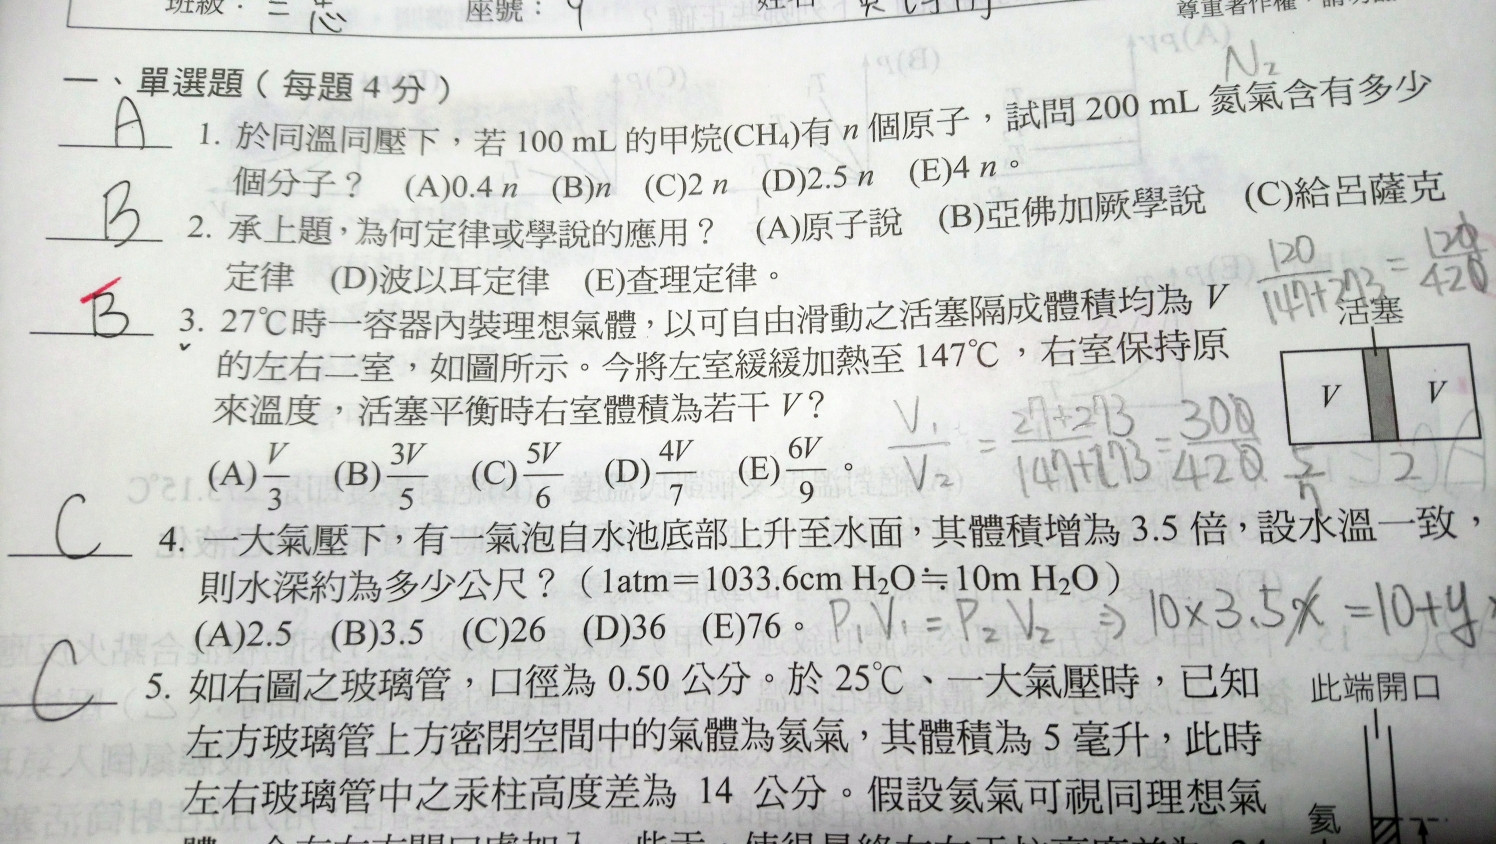 班級：三忠 座號：9 姓名
尊重著作權，請勿
一、單選題（每題 4 分）
N₂
A 1. 於同溫同壓下，若 100 mL 的甲烷(CH₄)有 n 個原子，試問 200 mL 氮氣含有多少
個分子？ (A)0.4 n (B)n (C)2 n (D)2.5 n (E)4 n。
B 2. 承上題，為何定律或學說的應用？ (A)原子說 (B)亞佛加厥學說 (C)給呂薩克
定律 (D)波以耳定律 (E)查理定律。
120/147+273 = 120/420
B 3. 27℃時一容器內裝理想氣體，以可自由滑動之活塞隔成體積均為 V
活塞
的左右二室，如圖所示。今將左室緩緩加熱至 147℃，右室保持原
V V
來溫度，活塞平衡時右室體積為若干 V？
V₁/V₂ = 27+273/147+273 = 300/420 5/7 2
(A)V/3 (B)3V/5 (C)5V/6 (D)4V/7 (E)6V/9。
C 4. 一大氣壓下，有一氣泡自水池底部上升至水面，其體積增為 3.5 倍，設水溫一致，
則水深約為多少公尺？（1atm＝1033.6cm H₂O≒10m H₂O）
(A)2.5 (B)3.5 (C)26 (D)36 (E)76。 P₁V₁ = P₂V₂ ⇒ 10×3.5x = 10+y
C 5. 如右圖之玻璃管，口徑為 0.50 公分。於 25℃、一大氣壓時，已知
此端開口
左方玻璃管上方密閉空間中的氣體為氦氣，其體積為 5 毫升，此時
左右玻璃管中之汞柱高度差為 14 公分。假設氦氣可視同理想氣
氦